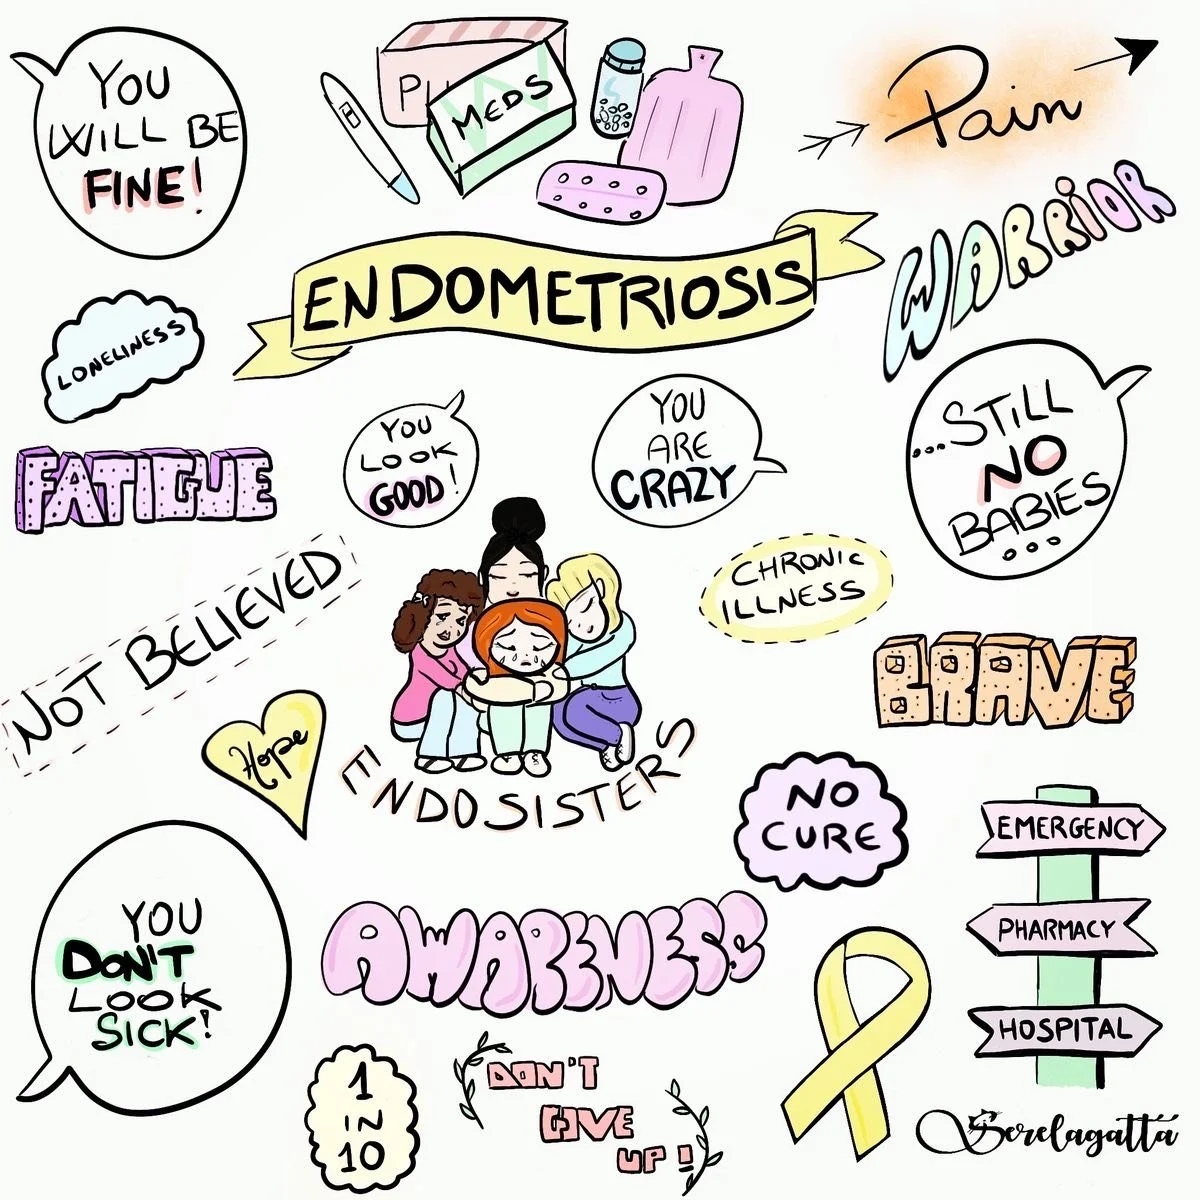 YOU
WILL BE
FINE!
MEDS
Pain
WARRIOR
ENDOMETRIOSIS
LONELINESS
FATIGUE
YOU
LOOK
GOOD!
YOU
ARE
CRAZY
...STiLL
NO
BABIES
...
NOT BELIEVED
CHRONIC
ILLNESS
BRAVE
Hope
ENDOSISTERS
NO
CURE
EMERGENCY
PHARMACY
HOSPITAL
YOU
DON'T
LOOK
SICK!
AWARENESS
1
IN
10
DON'T
GIVE
UP!
Serelagatta